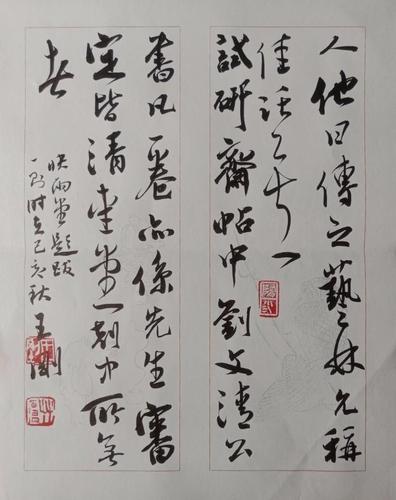 人他日傳之藝林允稱
佳話
試研齋帖中劉文清公
書凡一卷亦係先生審
定皆清愛堂一刻中所無
者
快雨堂題跋
一則时在己亥秋
王剛